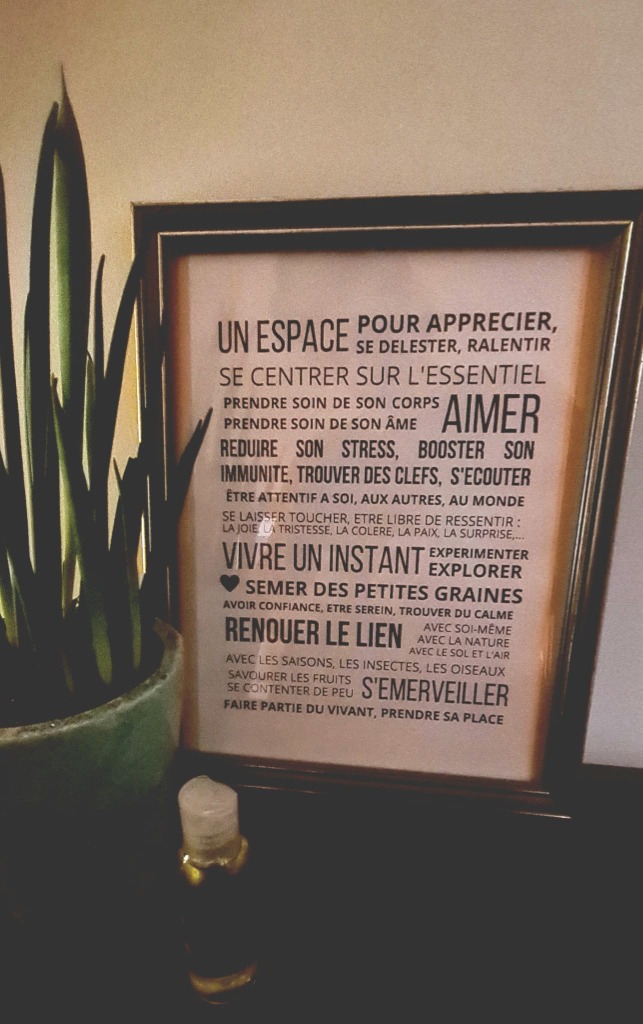 UN ESPACE POUR APPRECIER,
SE DELESTER, RALENTIR
SE CENTRER SUR L'ESSENTIEL
PRENDRE SOIN DE SON CORPS
PRENDRE SOIN DE SON ÂME
AIMER
REDUIRE SON STRESS, BOOSTER SON
IMMUNITE, TROUVER DES CLEFS, S'ECOUTER
ÊTRE ATTENTIF A SOI, AUX AUTRES, AU MONDE
SE LAISSER TOUCHER, ETRE LIBRE DE RESSENTIR :
LA JOIE, LA TRISTESSE, LA COLERE, LA PAIX, LA SURPRISE,...
VIVRE UN INSTANT EXPERIMENTER
EXPLORER
♥ SEMER DES PETITES GRAINES
AVOIR CONFIANCE, ETRE SEREIN, TROUVER DU CALME
RENOUER LE LIEN AVEC SOI-MÊME
AVEC LA NATURE
AVEC LE SOL ET L'AIR
AVEC LES SAISONS, LES INSECTES, LES OISEAUX
SAVOURER LES FRUITS
SE CONTENTER DE PEU
S'EMERVEILLER
FAIRE PARTIE DU VIVANT, PRENDRE SA PLACE